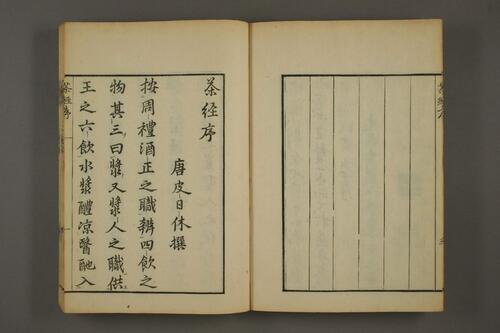 茶經序
唐皮日休撰
按周禮酒正之職辨四飲之
物其三曰漿又漿人之職供
王之六飲水漿醴凉醫酏入
茶經序